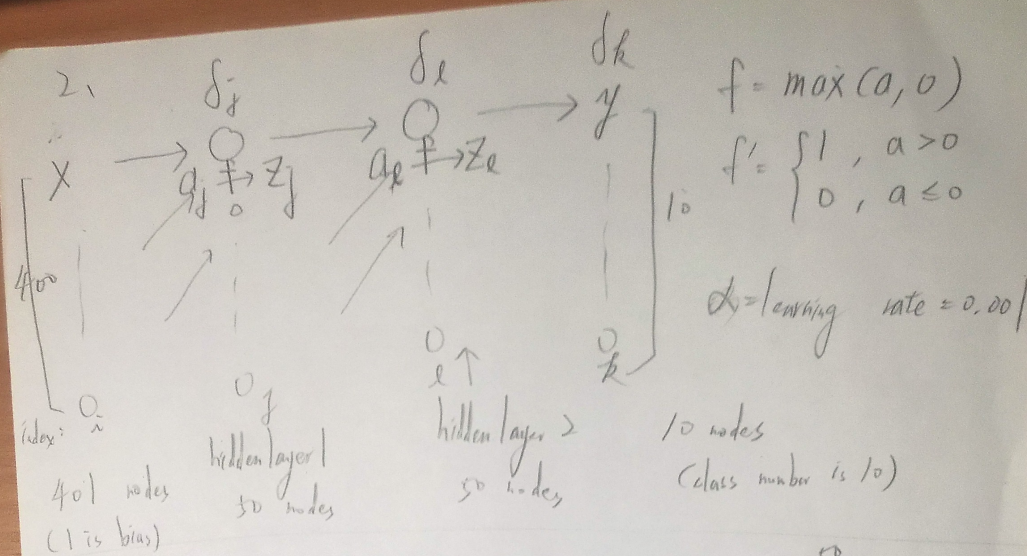 2、
δj δl δk
x aj zj al zl y
f = max(a,0)
f' = { 1 , a>0
0 , a≤0
400
10
α = learning rate = 0.001
index: i
j
l
k
401 nodes
(1 is bias)
hidden layer 1
50 nodes
hidden layer 2
50 nodes
10 nodes
(class number is 10)